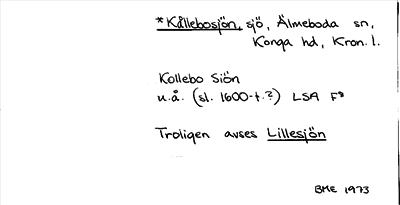 *Kållebosjön, sjö, Älmeboda sn,
Konga hd, Kron. l.
Kollebo Siön
u.å. (sl. 1600-t.?) LSA F⁸
Troligen avses Lillesjön
BME 1973